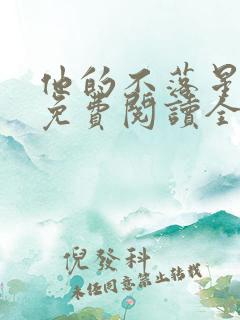 他的不落星
免費閱讀全
倪發科
未经同意禁止转载